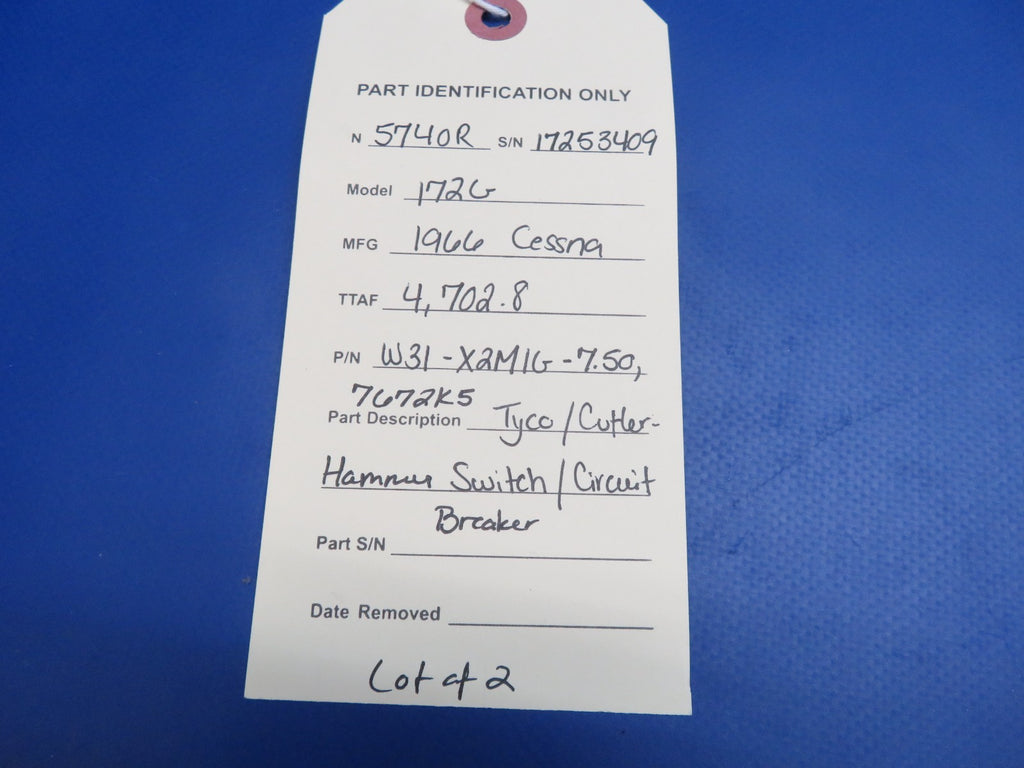 PART IDENTIFICATION ONLY
N 5740R S/N 17253409
Model 172G
MFG 1966 Cessna
TTAF 4,702.8
P/N W31-X2M1G-7.50,
7672K5
Part Description Tyco/Cutler-
Hammer Switch/Circuit
Breaker
Part S/N
Date Removed
Lot of 2